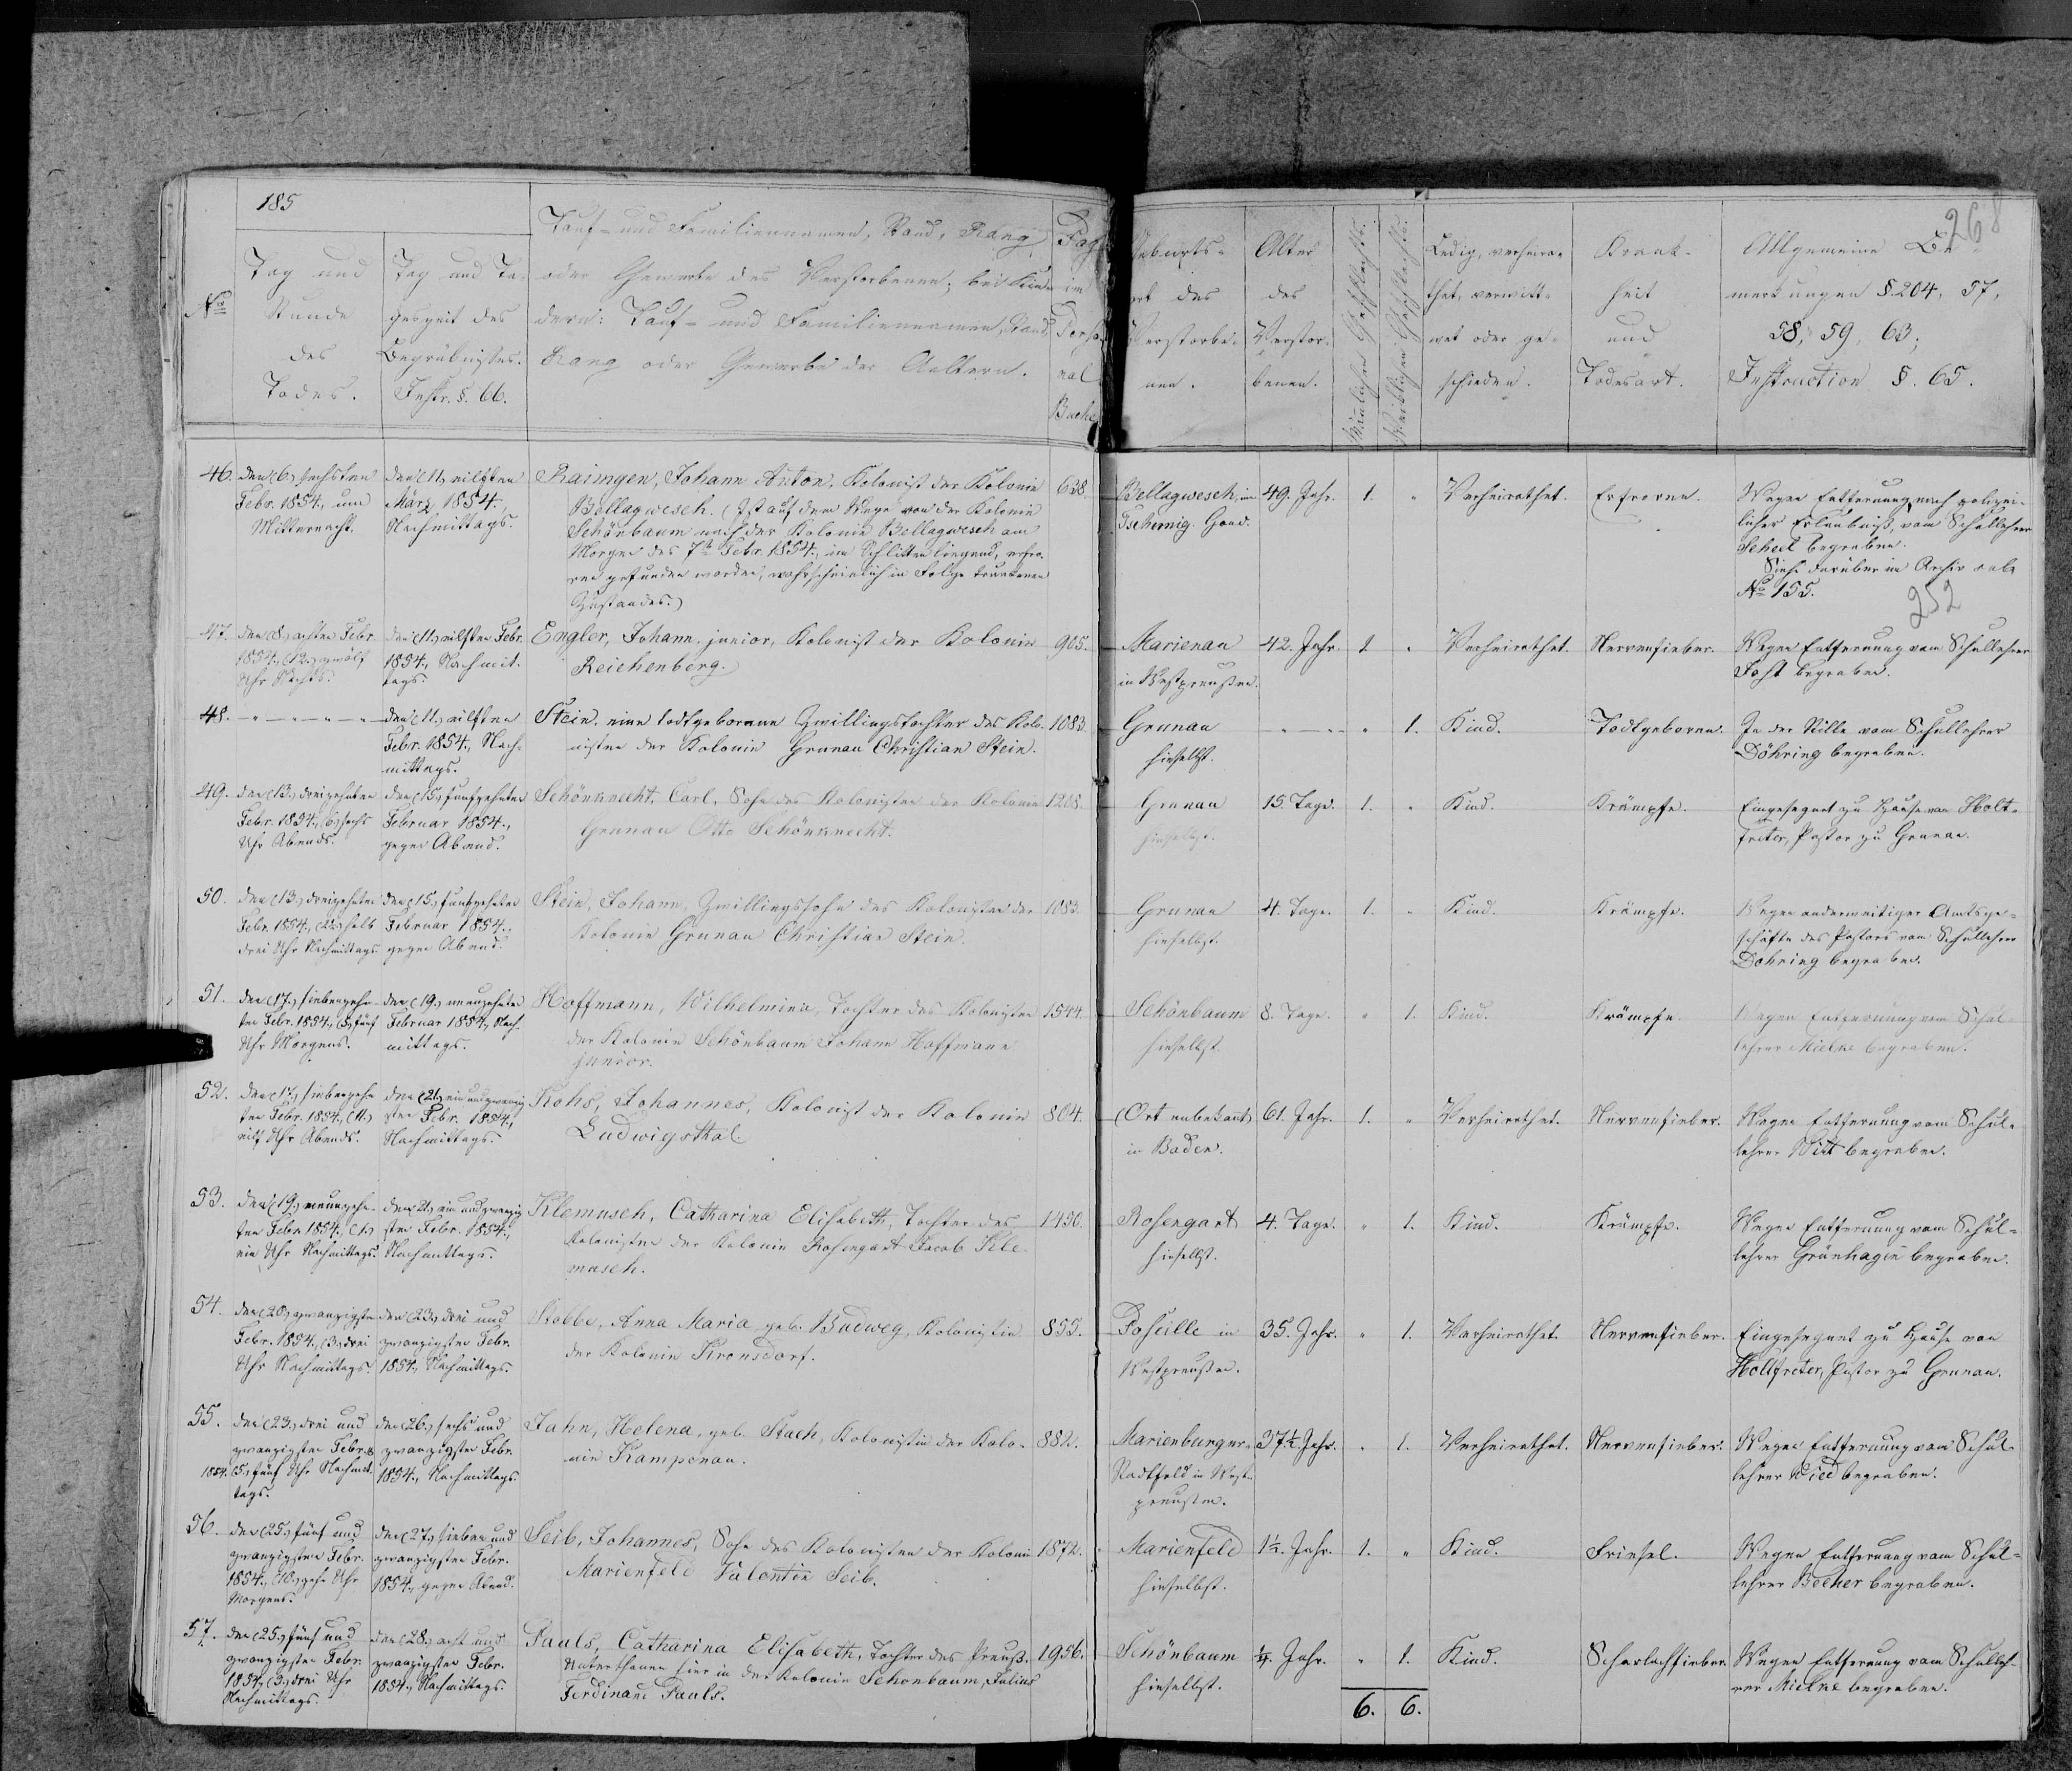 185
268
No
Tag und
Stunde
des
Todes.
Tag und Ta-
geszeit des
Begräbnisses.
Instr. §. 66.
Tauf- und Familiennamen, Stand, Rang
oder Gewerbe des Verstorbenen; bei Kin-
dern: Tauf- und Familiennamen, Stand,
Rang oder Gewerbe der Aeltern.
Pag.
im
Perso-
nal
Buche
Geburts-
ort des
Verstorbe-
nen.
Alter
des
Verstor-
benen.
Männlichen Geschlechts.
Weiblichen Geschlechts.
Ledig, verheira-
thet, verwitt-
wet oder ge-
schieden.
Krank-
heit
und
Todesart.
Allgemeine Be-
merkungen §. 204, 57,
58, 59, 63;
Instruction §. 65.
46.
den (6.) sechsten
Febr. 1854., um
Mitternacht.
den (11.) eilften
März 1854.
Nachmittags.
Raimgen, Johann Anton, Kolonist der Kolonie
Bellagwesch. (Ist auf dem Wege von der Kolonie
Schönbaum nach der Kolonie Bellagwesch am
Morgen des 7ten Febr. 1854., im Schlitten liegend, erfro-
ren gefunden worden, wahrscheinlich in Folge trunkenen
Zustandes.)
638.
Bellagwesch, im
Tschernig. Gouv.
49. Jahr.
1.
"
Verheirathet.
Erfroren.
Wegen Entfernung nach polizei-
licher Erlaubniß vom Schullehrer
Scheel begraben.
Siehe darüber im Archiv sub
No 155.
252
47.
den (8.) achten Febr.
1854., (12.) zwölf
Uhr Nachts.
den (11.) eilften Febr.
1854., Nachmit-
tags.
Engler, Johann junior, Kolonist der Kolonie
Reichenberg.
905.
Marienau
in Westpreußen.
42. Jahr.
1.
"
Verheirathet.
Nervenfieber.
Wegen Entfernung vom Schullehrer
Jost begraben.
48.
" — " — " — "
den (11.) eilften
Febr. 1854., Nach-
mittags.
Stein, eine todtgeborene Zwillingstochter des Kolo-
nisten der Kolonie Grunau Christian Stein.
1083.
Grunau
hieselbst.
" — "
"
1.
Kind.
Todtgeboren.
In der Stille vom Schullehrer
Döhring begraben.
49.
den (13.) dreizehnten
Febr. 1854., (6.) sechs
Uhr Abends.
den (15.) fünfzehnten
Februar 1854.,
gegen Abend.
Schönknecht, Carl, Sohn des Kolonisten der Kolonie
Grunau Otto Schönknecht.
1208.
Grunau
hieselbst.
15. Tage.
1.
"
Kind.
Krämpfe.
Eingesegnet zu Hause von Holt-
freter, Pastor zu Grunau.
50.
den (13.) dreizehnten
Febr. 1854., (2½) halb
drei Uhr Nachmittags.
den (15.) fünfzehnten
Februar 1854.,
gegen Abend.
Stein, Johann, Zwillingssohn des Kolonisten der
Kolonie Grunau Christian Stein.
1083.
Grunau
hieselbst.
4. Tage.
1.
"
Kind.
Krämpfe.
Wegen anderweitiger Amtsge-
schäfte des Pastors vom Schullehrer
Döhring begraben.
51.
den (17.) siebenzehn-
ten Febr. 1854., (5.) fünf
Uhr Morgens.
den (19.) neunzehnten
Februar 1854., Nach-
mittags.
Hoffmann, Wilhelmina, Tochter des Kolonisten
der Kolonie Schönbaum Johann Hoffmann
junior.
1544.
Schönbaum
hieselbst.
8. Tage.
"
1.
Kind.
Krämpfe.
Wegen Entfernung vom Schul-
lehrer Mielke begraben.
52.
den (17.) siebenzehn-
ten Febr. 1854., (11.)
eilf Uhr Abends.
den (21.) ein und zwanzig-
sten Febr. 1854.,
Nachmittags.
Kohs, Johannes, Kolonist der Kolonie
Ludwigsthal.
804.
(Ort unbekannt)
in Baden.
61. Jahr.
1.
"
Verheirathet.
Nervenfieber.
Wegen Entfernung vom Schul-
lehrer Witt begraben.
53.
den (19.) neunzehn-
ten Febr. 1854., (1.)
ein Uhr Nachmittags.
den (21.) ein und zwanzig-
sten Febr. 1854.,
Nachmittags.
Klemusch, Catharina Elisabeth, Tochter des
Kolonisten der Kolonie Rosengart Jacob Kle-
musch.
1450.
Rosengart
hieselbst.
4. Tage.
"
1.
Kind.
Krämpfe.
Wegen Entfernung vom Schul-
lehrer Grünhagen begraben.
54.
den (20.) zwanzigsten
Febr. 1854., (3.) drei
Uhr Nachmittags.
den (23.) drei und
zwanzigsten Febr.
1854., Nachmittags.
Stobbe, Anna Maria, geb. Budweg, Kolonistin
der Kolonie Kronsdorf.
855.
Poseille in
Westpreußen.
35. Jahr.
"
1.
Verheirathet.
Nervenfieber.
Eingesegnet zu Hause von
Holtfreter, Pastor zu Grunau.
55.
den (23.) drei und
zwanzigsten Febr.
1854. (5.) fünf Uhr Nachmit-
tags.
den (26.) sechs und
zwanzigsten Febr.
1854., Nachmittags.
Jahn, Helena, geb. Stach, Kolonistin der Kolo-
nie Kampenau.
882.
Marienburger-
Stadtfeld in West-
preußen.
37½ Jahr.
"
1.
Verheirathet.
Nervenfieber.
Wegen Entfernung vom Schul-
lehrer Nied begraben.
56.
den (25.) fünf und
zwanzigsten Febr.
1854., (10.) zehn Uhr
Morgens.
den (27.) sieben und
zwanzigsten Febr.
1854., gegen Abend.
Seib, Johannes, Sohn des Kolonisten der Kolonie
Marienfeld Valentin Seib.
1872.
Marienfeld
hieselbst.
1½. Jahr.
1.
"
Kind.
Friesel.
Wegen Entfernung vom Schul-
lehrer Becker begraben.
57.
den (25.) fünf und
zwanzigsten Febr.
1854., (3.) drei Uhr
Nachmittags.
den (28.) acht und
zwanzigsten Febr.
1854., Nachmittags.
Pauls, Catharina Elisabeth, Tochter des Preuß.
Unterthanen hier in der Kolonie Schönbaum, Julius
Ferdinand Pauls.
1956.
Schönbaum
hieselbst.
¼. Jahr.
"
1.
Kind.
Scharlachfieber.
Wegen Entfernung vom Schulleh-
rer Mielke begraben.
6.
6.